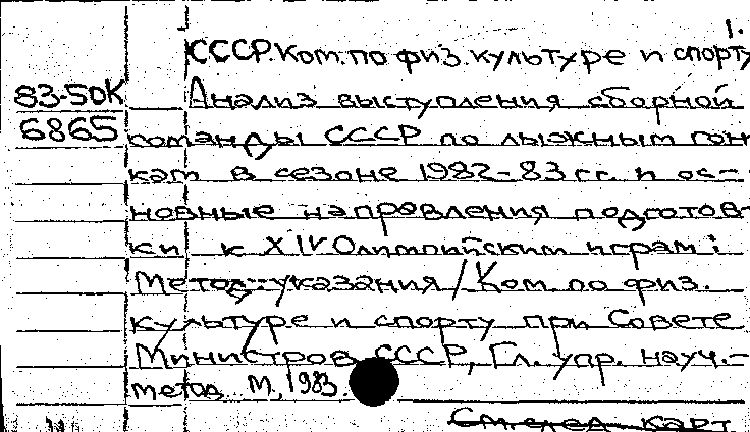 1.
СССР. Ком. по физ. культуре и спорту
83-50К
Анализ выступления сборной
6865
команды СССР по лыжным гон-
кам в сезоне 1982-83 гг. и ос-
новные направления подготов-
ки к XIV Олимпийским играм:
Метод. указания / Ком. по физ.
культуре и спорту при Совете
Министров СССР, Гл. упр. науч.-
метод. М., 1983.
См. след. карт.